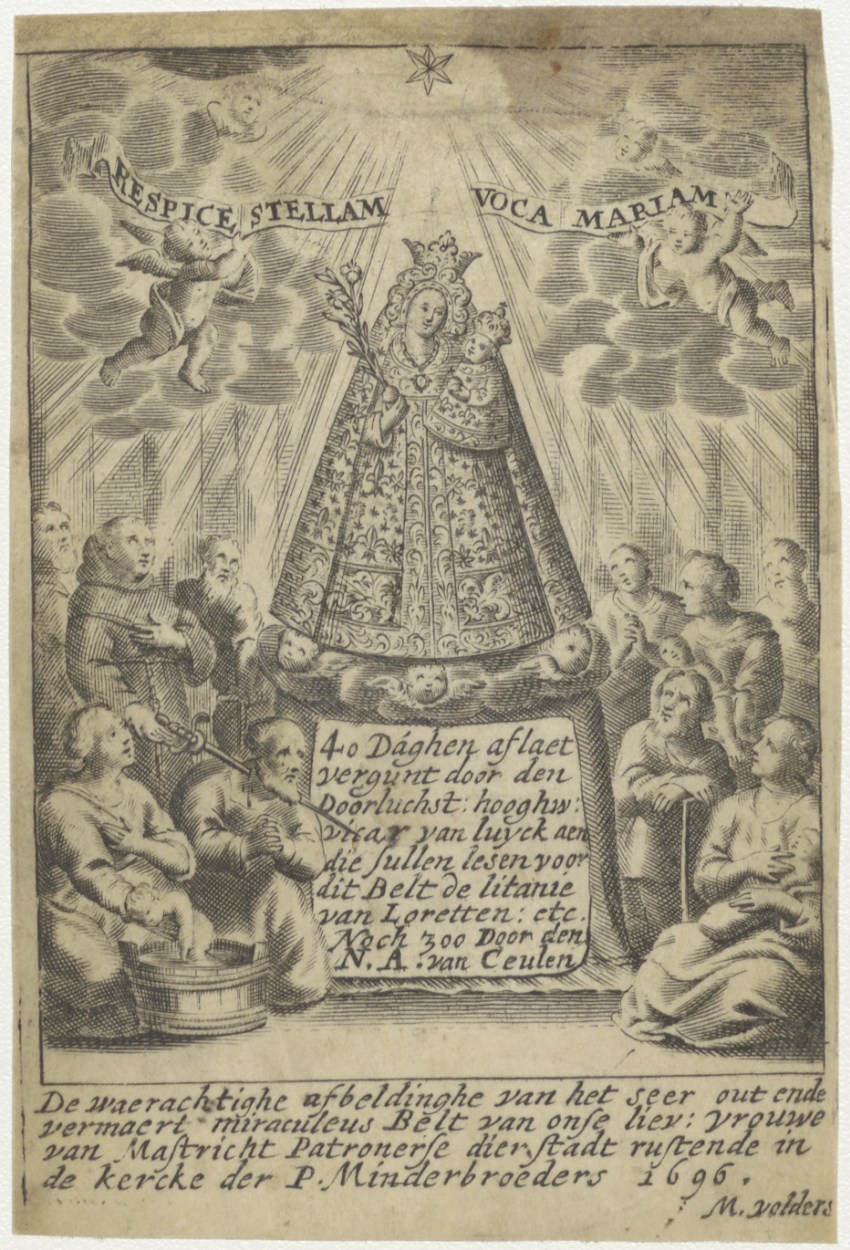 RESPICE STELLAM VOCA MARIAM
40 Dághen aflaet
vergunt door den
Doorluchst: hooghw:
vicar van luyck aen
die sullen lesen voor
dit Belt de litanie
van Loretten: etc.
Noch 300 Door den
N. A. van Ceulen
De waerachtighe afbeldinghe van het seer out ende
vermaert miraculeus Belt van onse liev: vrouwe
van Mastricht Patronerse dier stadt rustende in
de kercke der P. Minderbroeders 1696.
M. volders